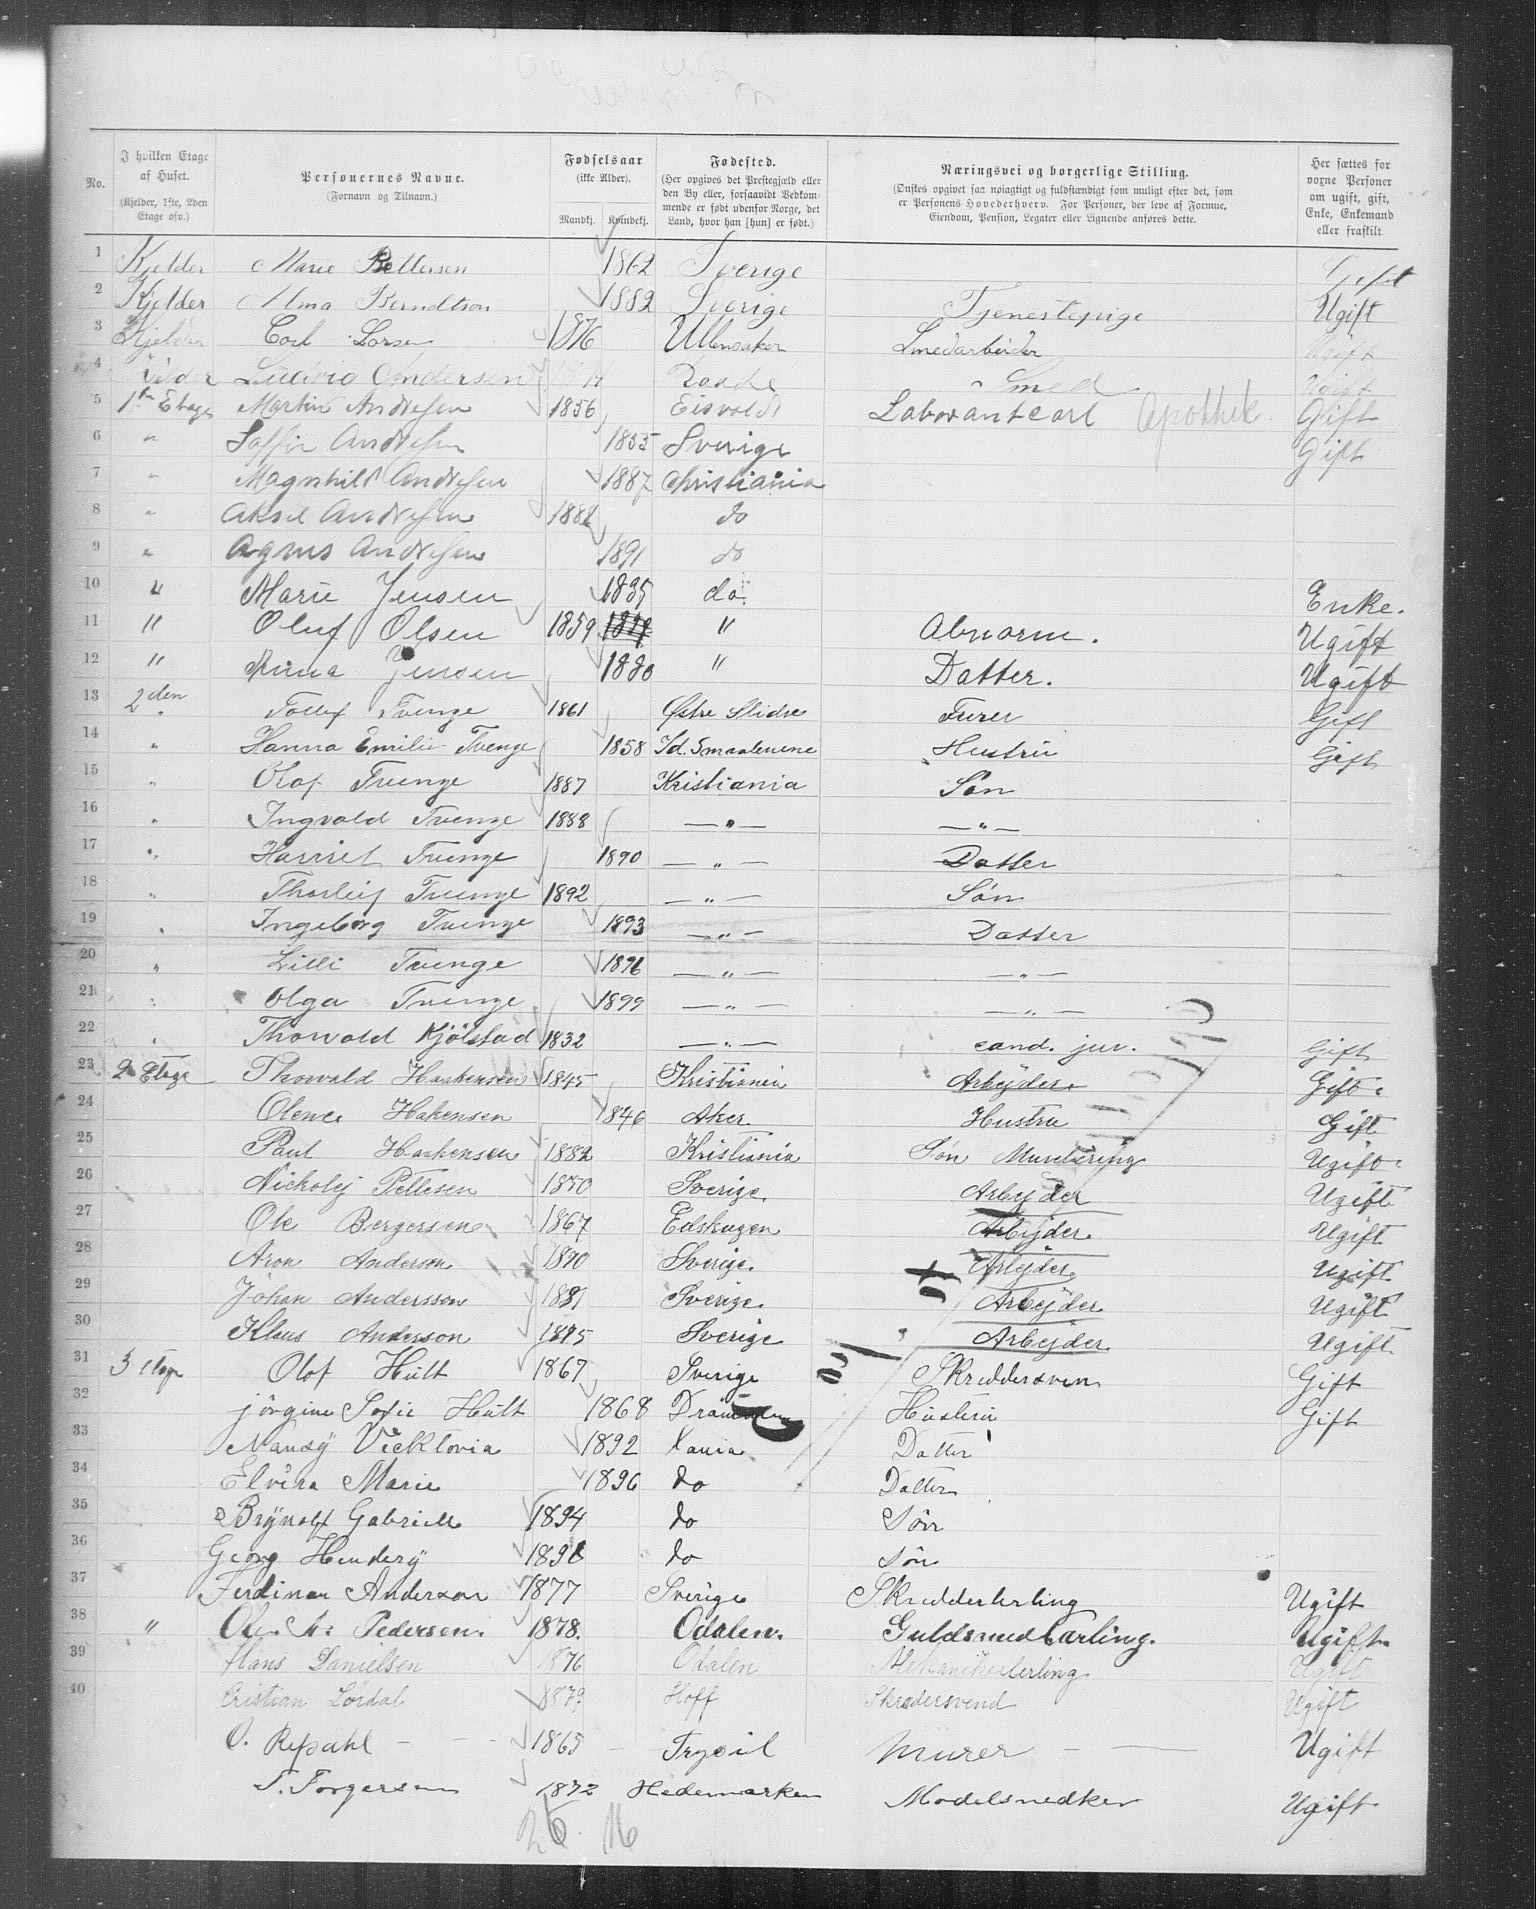 No.
I hvilken Etage af Huset. (Kjelder, 1ste, 2den Etage osv.)
Personernes Navne. (Fornavn og Tilnavn.)
Fødselsaar (ikke Alder). Mandkj. Kvindekj.
Fødested. (Her opgives det Prestegjæld eller den By eller, forsaavidt Vedkommende er født udenfor Norge, det Land, hvor han [hun] er født.)
Næringsvei og borgerlige Stilling. (Ønskes opgivet saa nøiagtigt og fuldstændigt som muligt efter det, som er Personens Hovederhverv. For Personer, der leve af Formue, Eiendom, Pension, Legater eller Lignende anføres dette.
Her sættes for voxne Personer om ugift, gift, Enke, Enkemand eller fraskilt.
1 Kjelder Marie Pettersen 1862 Sverige Gift
2 Kjelder Alma Berndtson 1882 Sverige Tjenestepige Ugift
3 Kjelder Carl Larsen 1876 Ullensaker Smedarbeider Ugift
4 Kjelder Ludvig Andersen Raade Smed Ugift
5 1ste Etage Martin Andresen 1856 Eisvold Laborantcarl Apothek. Gift
6 " Soffie Andresen 1855 Sverige Gift
7 " Magnhild Andresen 1887 Christiania
8 " Aksel Andresen 1888 do
9 " Agnes Andresen 1891 do
10 " Marie Jensen 1835 do
Enke.
11 " Oluf Olsen 1859 " Abnorm. Ugift
12 " Anna Jensen 1880 " Datter. Ugift
13 2den Tollef Tvenge 1861 Østre Slidre Furer Gift
14 " Hanna Emilie Tvenge 1858 Id. Smaalenene Hustru Gift
15 " Olaf Tvenge 1887 Kristiania Søn
16 " Ingvald Tvenge 1888 — " — — " —
17 " Harriet Tvenge 1890 — " — Datter
18 " Thorleif Tvenge 1892 — " — Søn
19 " Ingeborg Tvenge 1893 — " — Datter
20 " Lilli Tvenge 1896 — " — — " —
21 " Olga Tvenge 1899 — " — — " —
22 " Thorvald Kjölstad 1832 — " — cand. jur. Gift
23 2 Etage Thorvald Haakensen 1845 Kristiania Arbejder Gift
24 Olence Hakensen 1846 Aker Hustru Gift
25 Paul Haakensen 1882 Kristiania Søn Ugift
26 Nickolej Pettesen 1850 Sverige Arbejder Ugift
27 Ole Bergersen 1867 Edskogen Arbejder Ugift
28 Aron Anderson 1870 Sverige. Arbejder Ugift
29 Johan Andersson 1881 Sverige. Arbejder Ugift
30 Klaus Anderson 1875 Sverige Arbejder Ugift
31 3 Etage Olof Hult 1867 Sverige Skreddersven Gift
32 Jörgine Sofie Hult 1868 Drammen Hustru Gift
33 Nansy Vicktoria 1892 Xania Datter
34 Elvira Marie 1896 do Datter
35 Brynolf Gabriell 1894 do Sön
36 Georg Hendery 1898 do Sön
37 Ferdinan Anderson 1877 Sverige Skredderlerling Ugift
38 " Ole A. Pedersen. 1878. Odalen. Guldsmedlærling. Ugift.
39 Hans Danielsen 1876 Odalen Mekanikerlerling Ugift
40 Cristian Lördal 1879 Hoff Skredersvend Ugift
O. Repahl 1865 Trysil Murer Ugift
T. Torgersen 1872 Hedemarken Modelsnedker Ugift
25 16